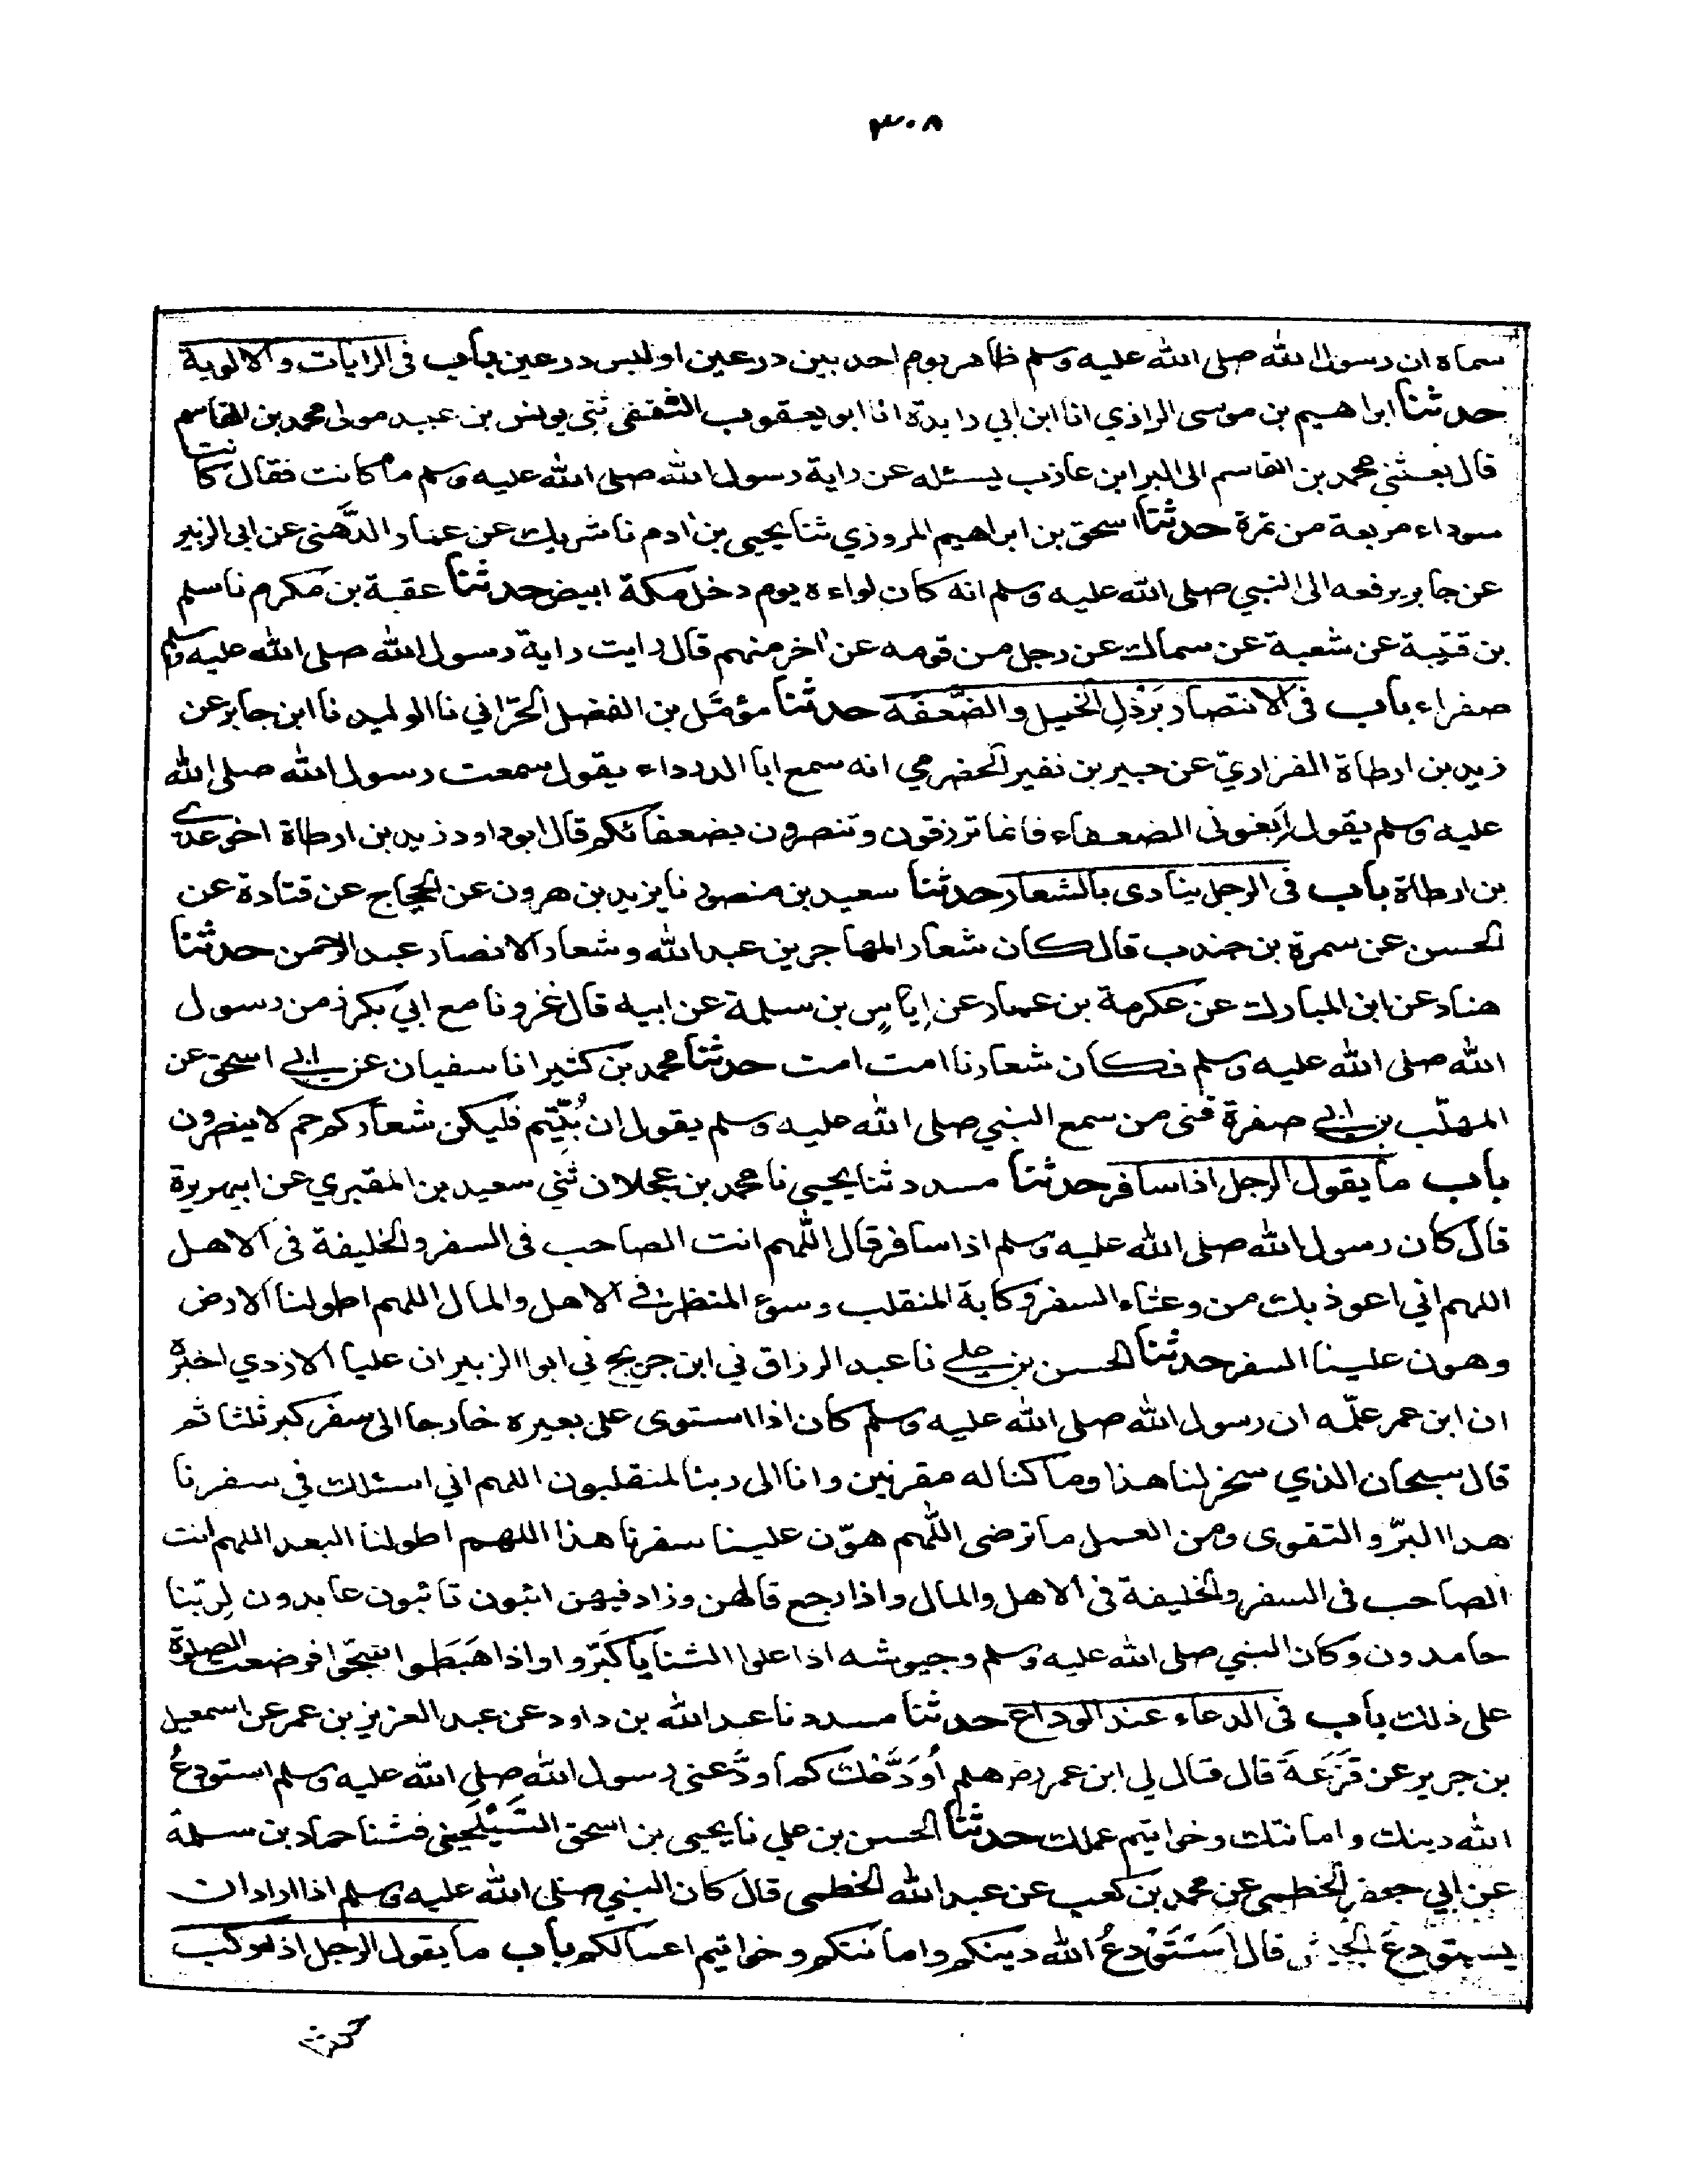 ٣٠٨
سماه ان رسول الله صلى الله عليه وسلم ظاهر يوم احد بين درعين او لبس درعين باب فى الرايات والالوية
حدثنا ابراهيم بن موسى الرازي انا ابن ابي زايدة انا ابو يعقوب الثقفى ثنى يونس بن عبيد مولى محمد بن القاسم
قال بعثني محمد بن القاسم الى البرا بن عازب يسئله عن راية رسول الله صلى الله عليه وسلم ما كانت فقال كانت
سوداء مربعة من نمرة حدثنا اسحق بن ابراهيم المروزي ثنا يحيى بن ادم نا شريك عن عمار الدُّهنى عن ابى الزبير
عن جابر يرفعه الى النبي صلى الله عليه وسلم انه كان لواءه يوم دخل مكة ابيض حدثنا عقبة بن مكرم نا سلم
بن قتيبة عن شعبة عن سماك عن رجل من قومه عن اخر منهم قال رايت راية رسول الله صلى الله عليه وسلم
صفراء باب فى الانتصار بَرْذِلِ الخيل والضَّعَفَة حدثنا مؤمَّل بن الفضل الحرّاني نا الوليد نا ابن جابر عن
زيد بن ارطاة الفزاريّ عن جبير بن نفير الحضرمي انه سمع ابا الدرداء يقول سمعت رسول الله صلى الله
عليه وسلم يقول اَبغونى الضعفاء فانما ترزقون وتنصرون بضعفائكم قال ابو داود زيد بن ارطاة اخو عدى
بن ارطاة باب فى الرجل ينادى بالشعار حدثنا سعيد بن منصور نا يزيد بن هرون عن الحجاج عن قتادة عن
الحسن عن سمرة بن جندب قال كان شعار المهاجرين عبد الله وشعار الانصار عبد الرحمن حدثنا
هناد عن ابن المبارك عن عكرمة بن عمار عن اِيَاسِ بن سلمة عن ابيه قال غزونا مع ابي بكر زمن رسول
الله صلى الله عليه وسلم فكان شعارنا امت امت حدثنا محمد بن كثير انا سفيان عن ابى اسحق عن
المهلّب بن ابى صفرة قنى من سمع النبي صلى الله عليه وسلم يقول ان بُيِّتِّم فليكن شعاركم حم لا ينصرون
باب ما يقول الرجل اذا سافر حدثنا مسدد ثنا يحيى نا محمد بن عجلان ثني سعيد بن المقبري عن ابيهريرة
قال كان رسول الله صلى الله عليه وسلم اذا سافر قال اللّهم انت الصاحب فى السفر والخليفة فى الاهل
اللهم اني اعوذ بك من وعثاء السفر وكابة المنقلب وسوء المنظر فى الاهل والمال اللهم اطو لنا الارض
وهون علينا السفر حدثنا الحسن بن على نا عبد الرزاق ني ابن جريج ني ابوا الزبير ان عليا الازدي اخبره
ان ابن عمر علّمه ان رسول الله صلى الله عليه وسلم كان اذا استوى على بعيره خارجا الى سفر كبر ثلثا ثم
قال سبحان الذي سخر لنا هذا وما كنا له مقرنين وانا الى ربنا لمنقلبون اللهم اني اسئلك في سفرنا
هذا البرّ والتقوى ومن العمل ما ترضى اللّهم هوّن علينا سفرنا هذا اللهم اطو لنا البعد اللهم انت
الصاحب فى السفر والخليفة فى الاهل والمال واذا رجع قالهن وزاد فيهن ائبون تائبون عابدون لِربّنا
حامدون وكان النبي صلى الله عليه وسلم وجيوشه اذا علوا الثنايا كَبّروا واذا هَبَطوا سَبّحوا فوضعت الصلوة
على ذلك باب فى الدعاء عند الوداع حدثنا مسدد نا عبد الله بن داود عن عبد العزيز بن عمر عن اسمعيل
بن جرير عن قَزَعَةَ قال قال لي ابن عمر رض هلم اُوَدِّعْك كما ودَّعنى رسول الله صلى الله عليه وسلم استودِعُ
الله دينك وامانتك وخواتيم عملك حدثنا الحسن بن علي نا يحيى بن اسحق السَّيْلَحِينى فثنا حماد بن سلمة
عن ابي جعفر الخطمى عن محمد بن كعب عن عبد الله الخطمى قال كان النبي صلى الله عليه وسلم اذا اراد ان
يستودعَ الجيش قال اَسْتَوْدِعُ الله دينكم وامانتكم وخواتيم اعمالكم باب ما يقول الرجل اذا ركب